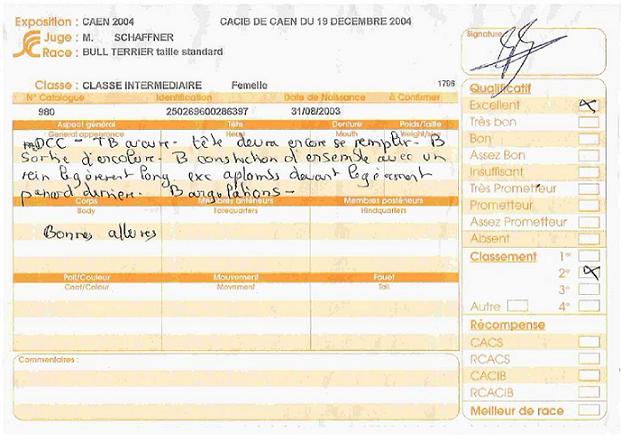 Exposition : CAEN 2004 CACIB DE CAEN DU 19 DECEMBRE 2004
Juge : M. SCHAFFNER
Race : BULL TERRIER taille standard
Signature
Classe : CLASSE INTERMEDIAIRE Femelle 1706
N° Catalogue Identification Date de Naissance A Confirmer
980 250269600286397 31/08/2003
Aspect général Tête Denture Poids/Taille
General appearance Head Mouth Weight/size
DCC - TB arcure - tête devra encore se remplir - B
Sortie d'encolure - B construction d'ensemble avec un
rein légèrement long, exc aplombs devant légèrement
panard derrière - B angulations -
Corps Membres antérieurs Membres postérieurs
Body Forequarters Hindquarters
Bonnes allures
Poil/Couleur Mouvement Fouet
Coat/Colour Movement Tail
Commentaires :
Qualificatif
Excellent x
Très bon
Bon
Assez Bon
Insuffisant
Très Prometteur
Prometteur
Assez Prometteur
Absent
Classement 1°
2° x
3°
Autre 4°
Récompense
CACS
RCACS
CACIB
RCACIB
Meilleur de race